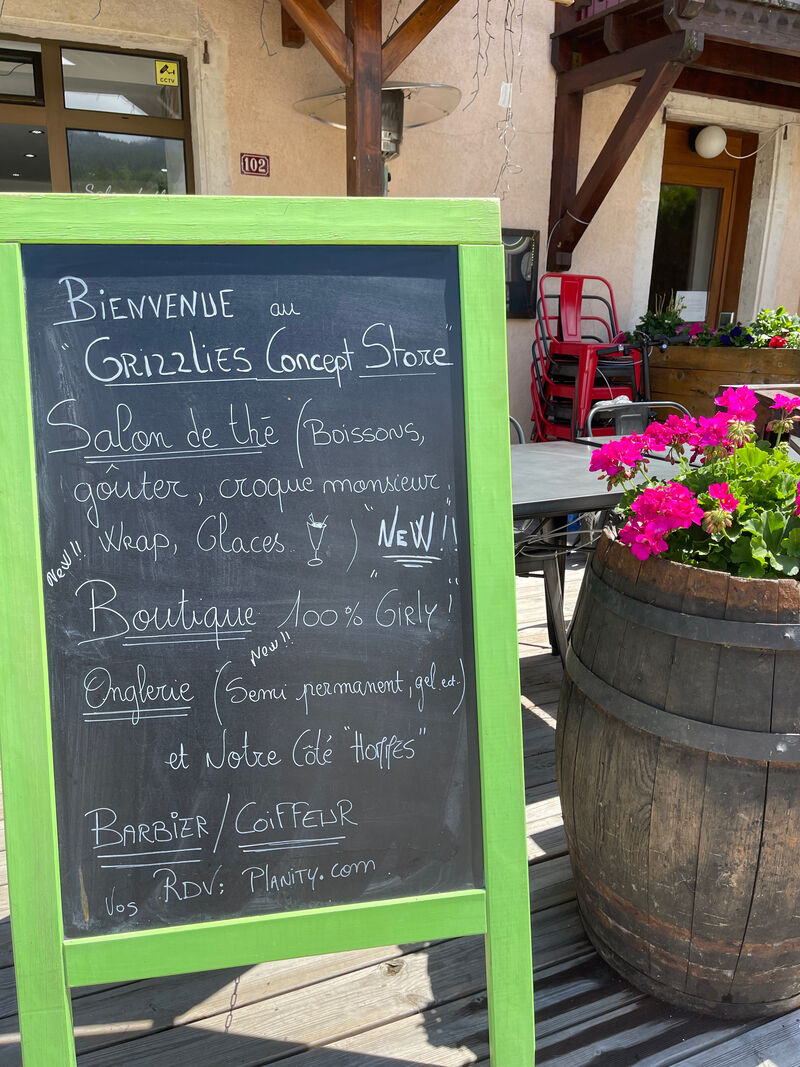 CCTV
102
BIENVENUE au
"GRIZZLIES Concept Store"
Salon de thé (Boissons,
goûter, croque monsieur,
Wrap, Glaces ) "NEW!!"
New!!
Boutique 100% "Girly"!
New!!
Onglerie (Semi permanent, gel. ect..)
et Notre Côté "HOMMES"
BARBIER/COIFFEUR
Vos RDV: PLANITY.com